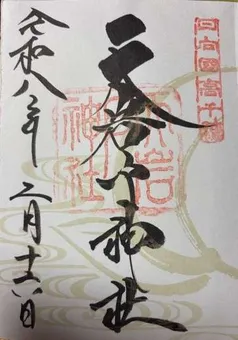 日向國高千穂
天岩戸神社
天岩戸神社
令和八年
二月十六日